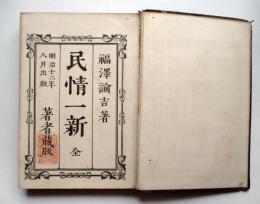 福澤諭吉著
民情一新 全
明治十二年
八月出版
著者蔵版